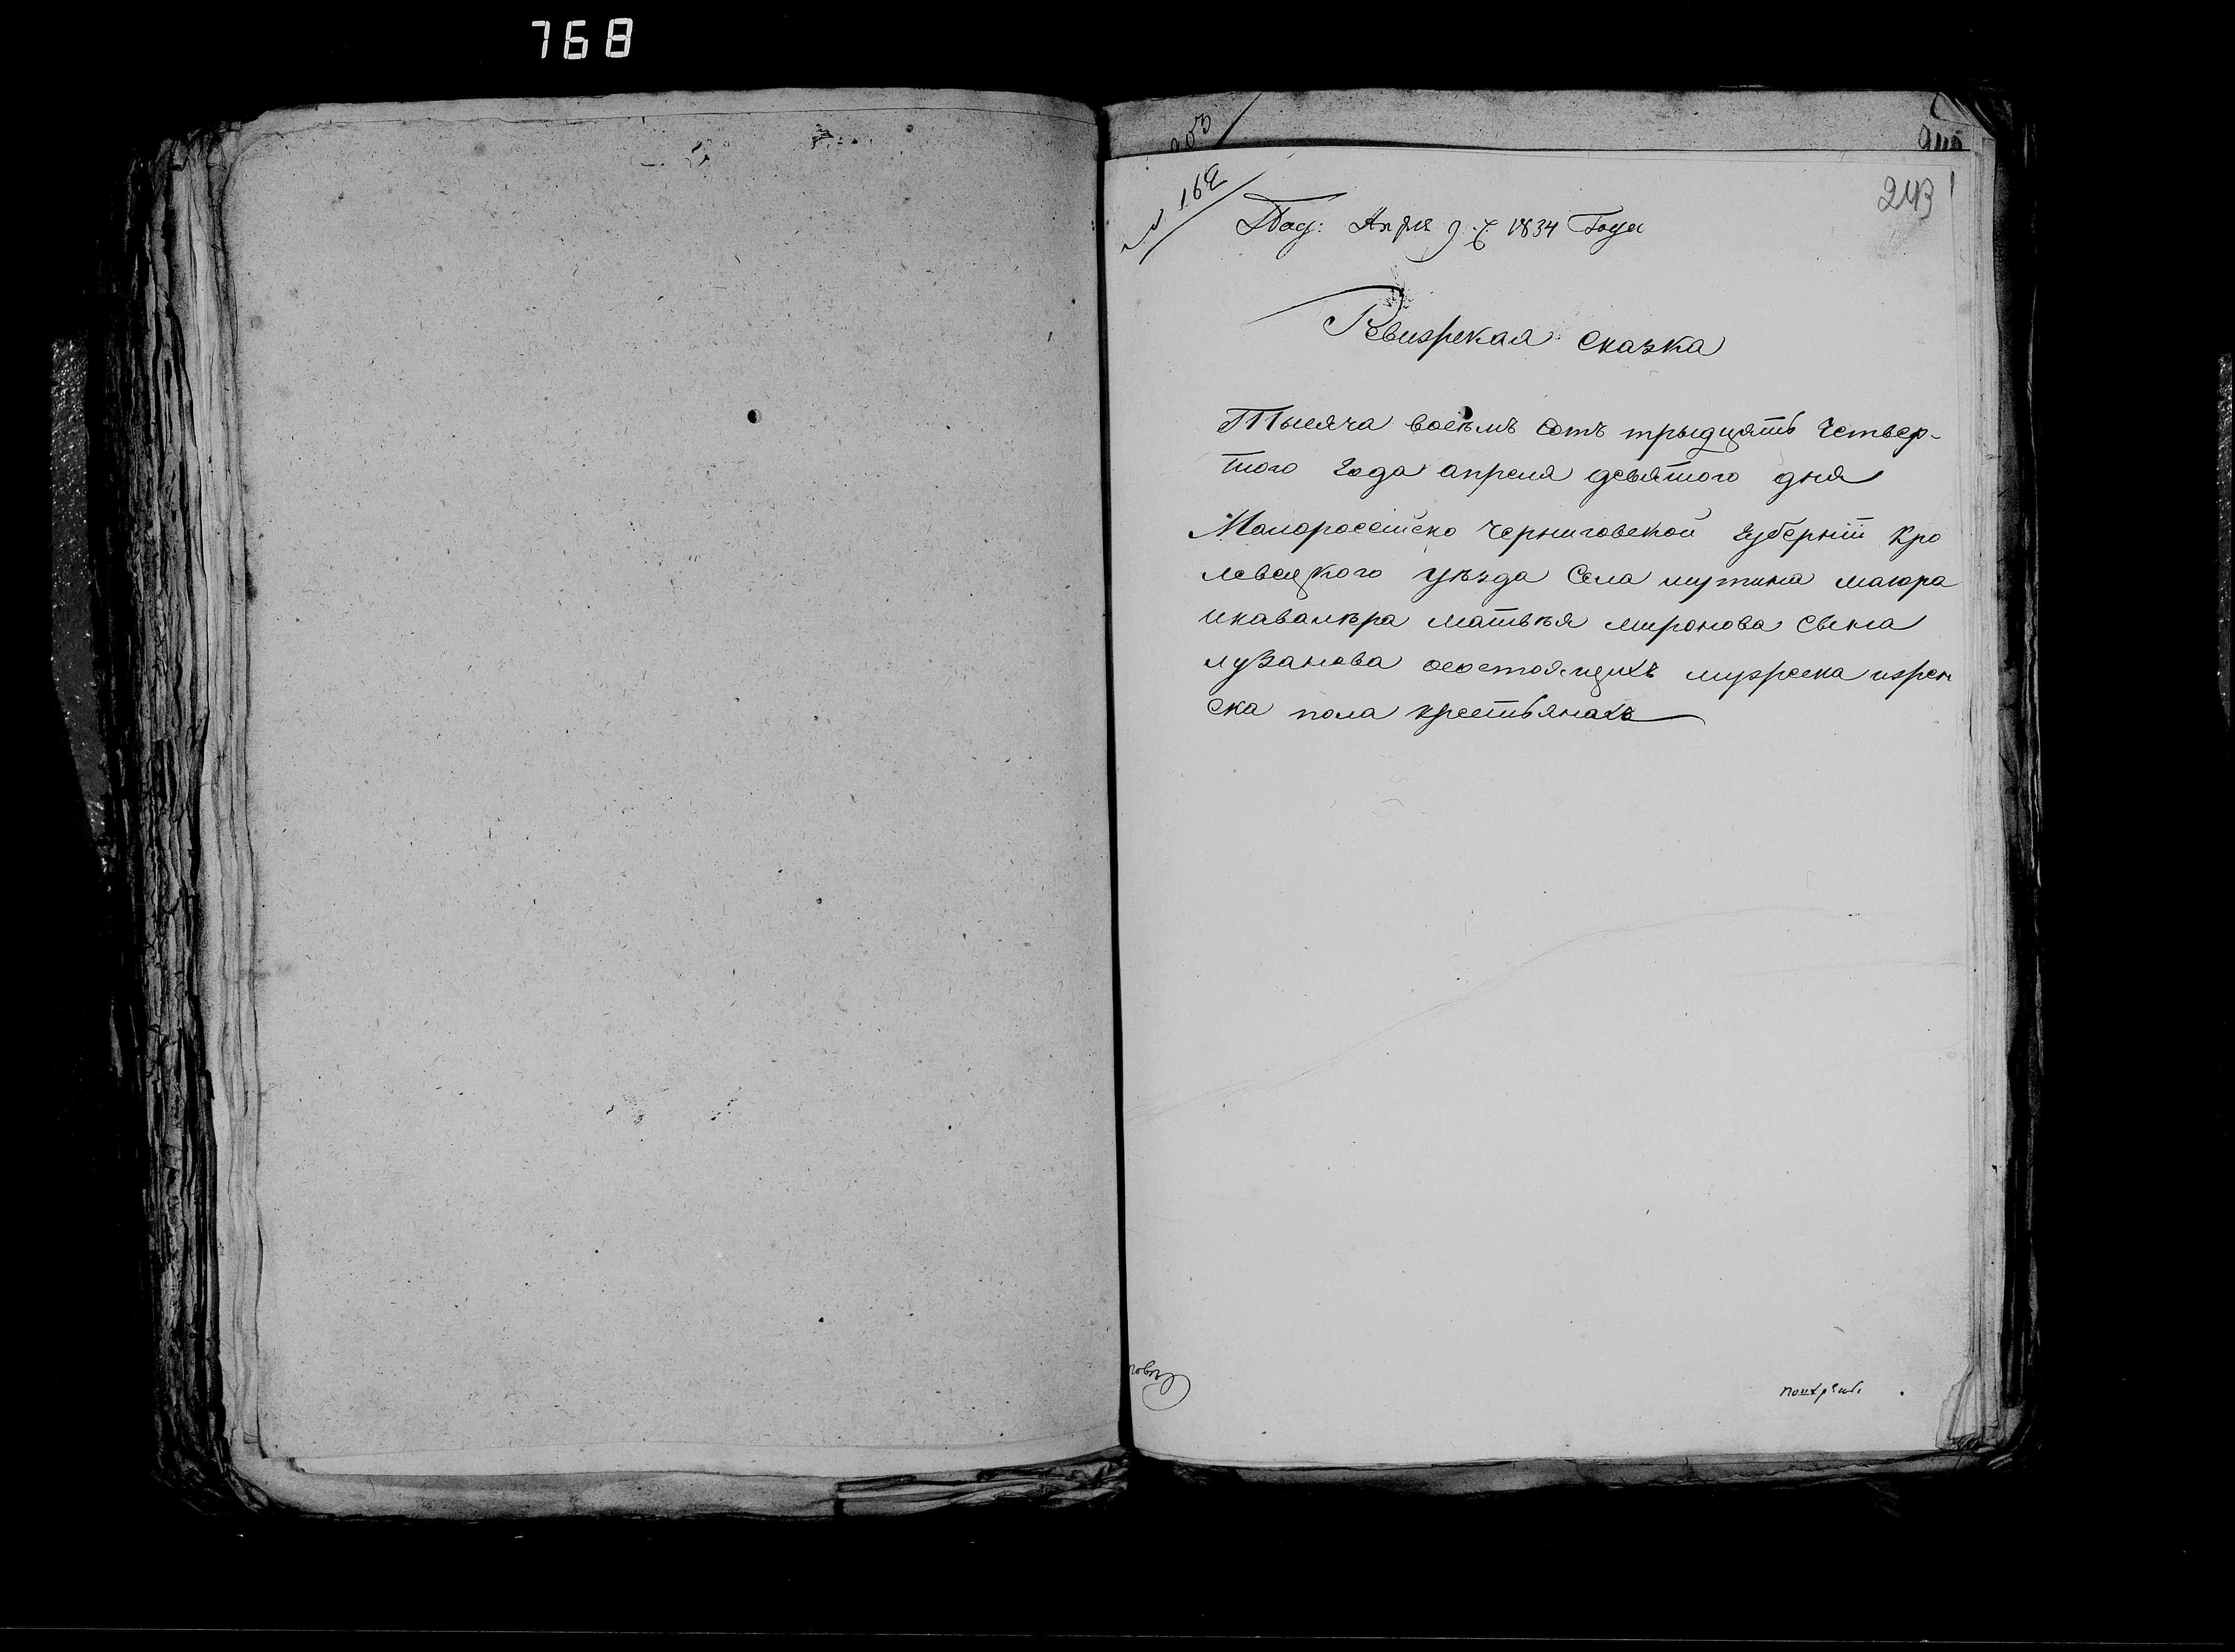 768
203
№ 162
243
Под: Апреля 9. 1834 Года
Ревизская сказка
Тысяча восѣмъ сотъ трыдцять Четвер-
того года апреля девятого дня
Малоросейско Черниговской губерніи Кро
левецкого уѣзда Села мутина маюра
икавалѣра матвѣя миронова сына
лузанова осостоящихъ музреска изрен
ска пола крестьянахъ